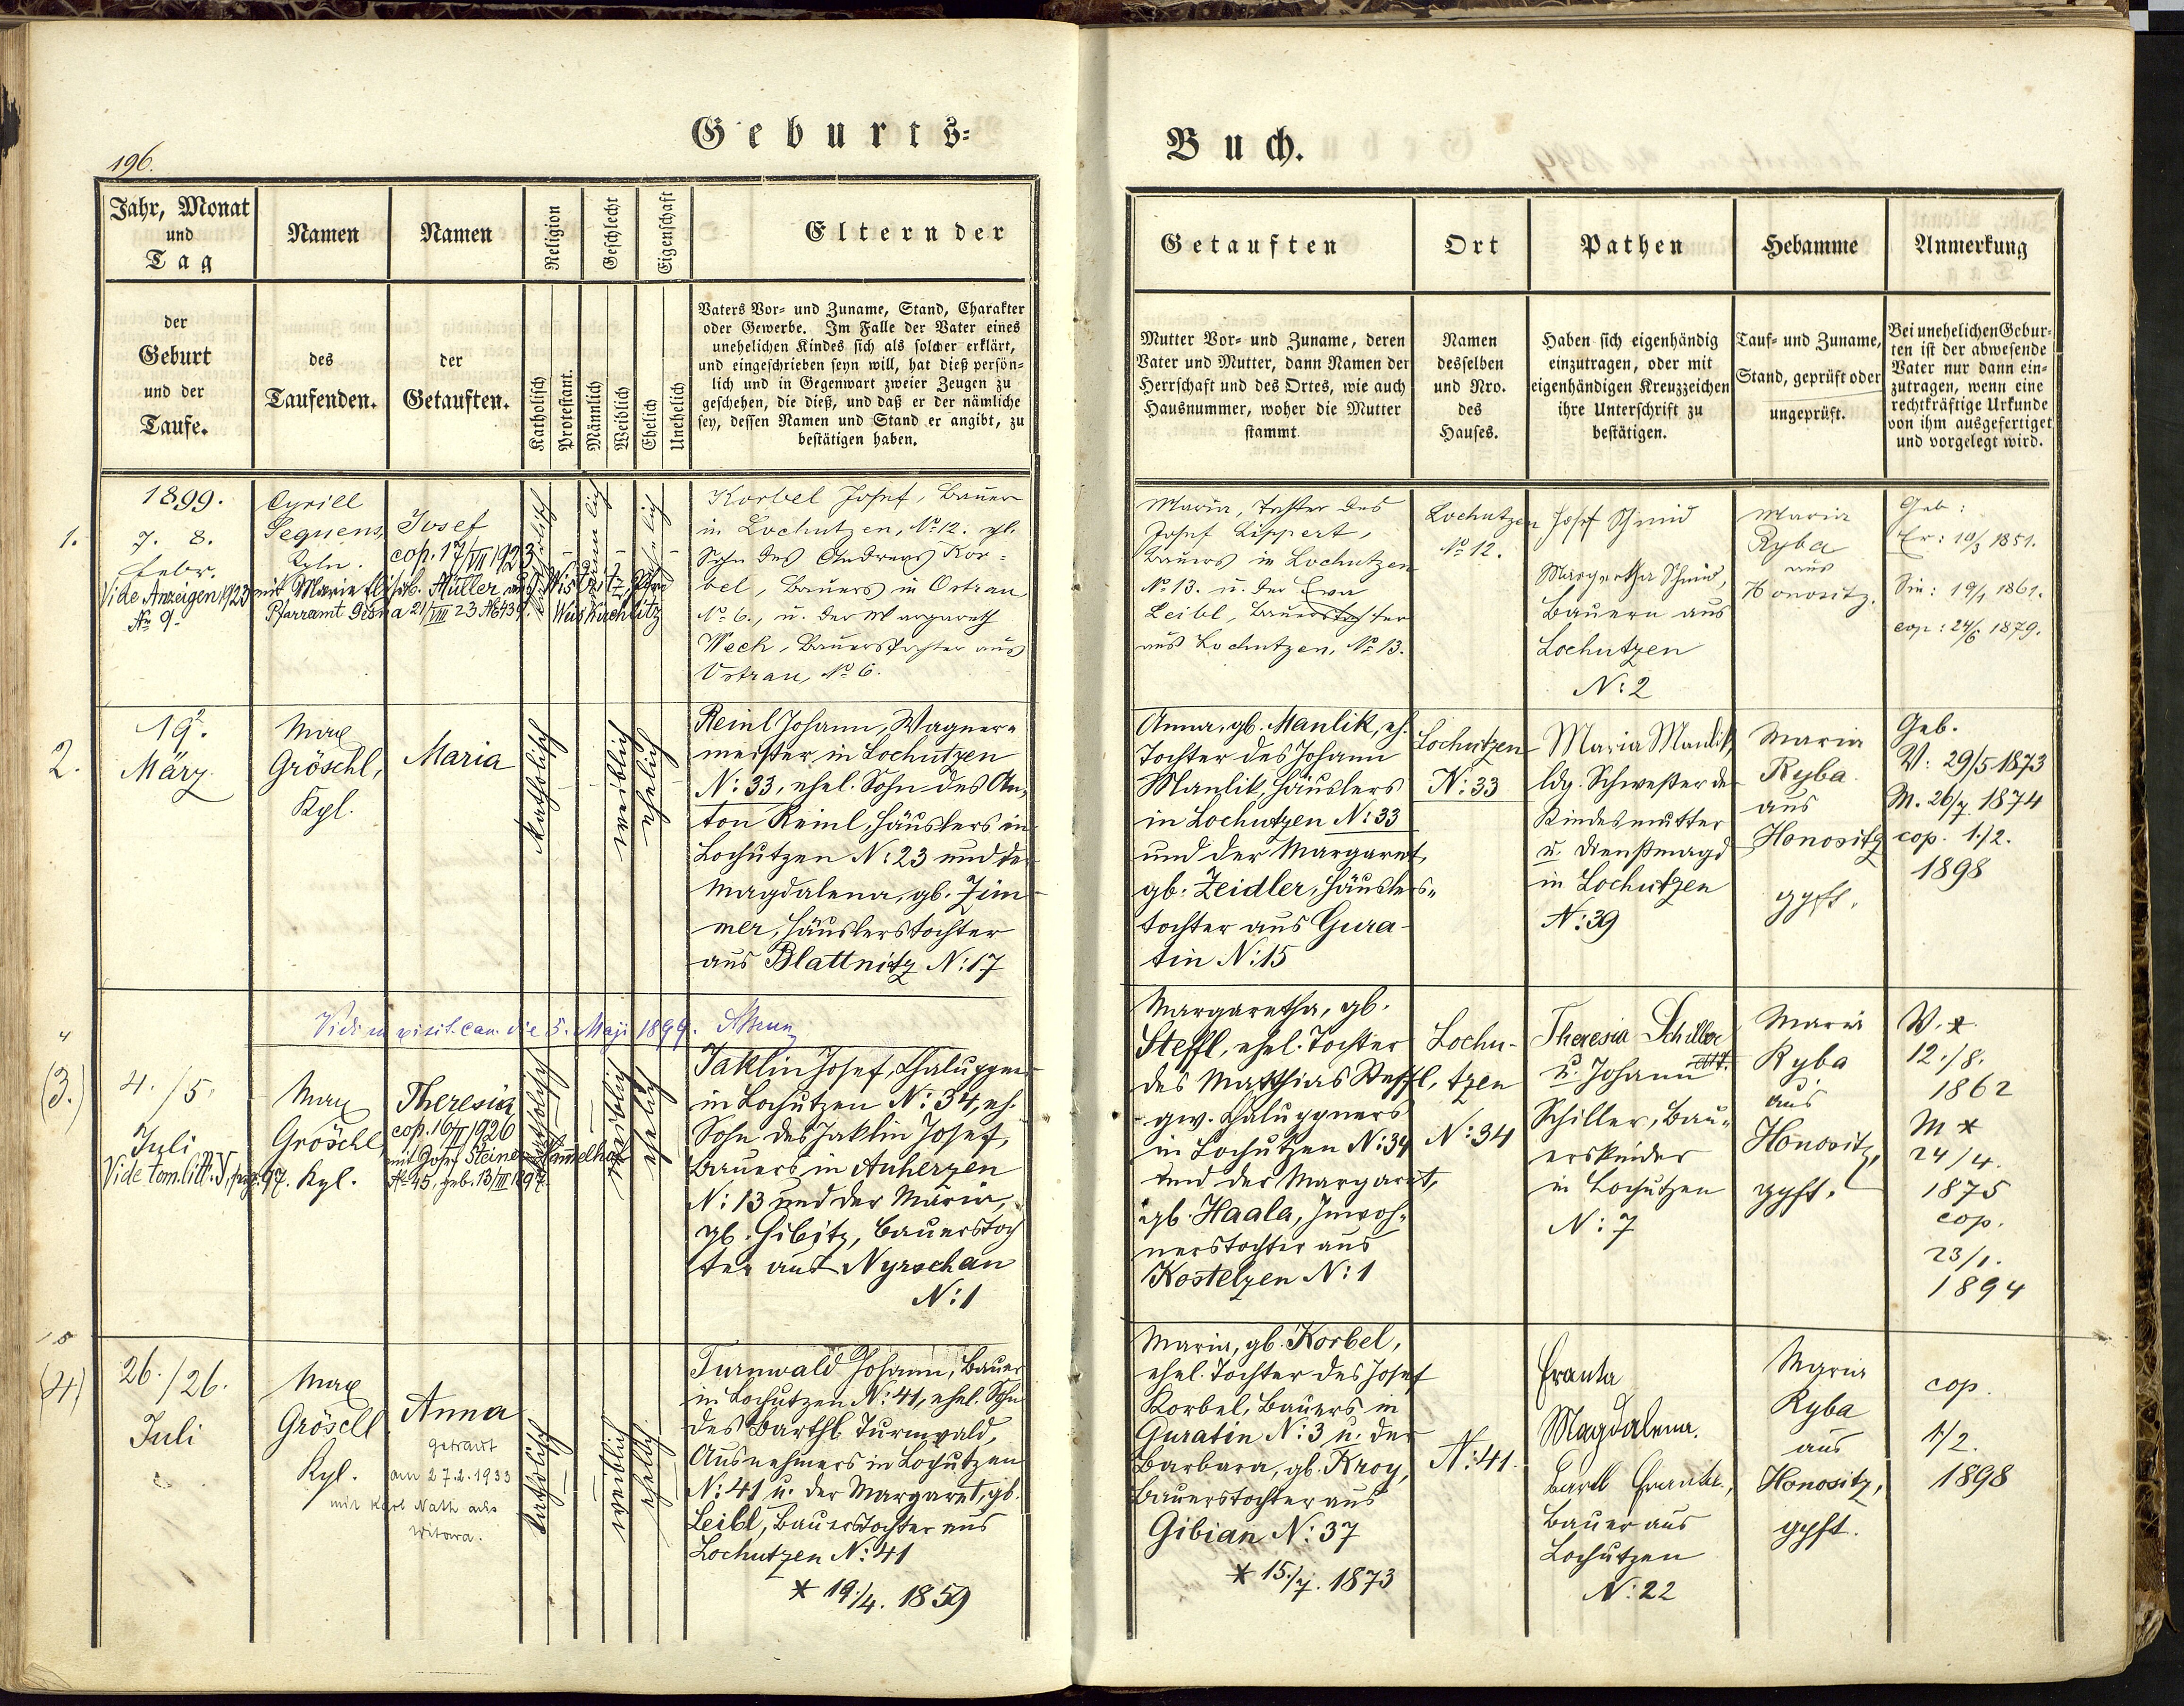 Geburts-
Buch.
196.
Jahr, Monat
und
Tag
Namen
Namen
Religion
Geschlecht
Eigenschaft
Eltern der
der
Geburt
und der
Taufe.
des
Taufenden.
der
Getauften.
Katholisch
Protestant.
Männlich
Weiblich
Ehelich
Unehelich
Vaters Vor- und Zuname, Stand, Charakter
oder Gewerbe. Im Falle der Vater eines
unehelichen Kindes sich als solcher erklärt,
und eingeschrieben seyn will, hat dieß persön-
lich und in Gegenwart zweier Zeugen zu
geschehen, die dieß, und daß er der nämliche
sey, dessen Namen und Stand er angibt, zu
bestätigen haben.
Getauften
Ort
Pathen
Hebamme
Anmerkung
Mutter Vor- und Zuname, deren
Vater und Mutter, dann Namen der
Herrschaft und des Ortes, wie auch
Hausnummer, woher die Mutter
stammt.
Namen
desselben
und Nro.
des
Hauses.
Haben sich eigenhändig
einzutragen, oder mit
eigenhändigen Kreuzzeichen
ihre Unterschrift zu
bestätigen.
Tauf- und Zuname,
Stand, geprüft oder
ungeprüft.
Bei unehelichen Gebur-
ten ist der abwesende
Vater nur dann ein-
zutragen, wenn eine
rechtkräftige Urkunde
von ihm ausgefertiget
und vorgelegt wird.
1.
1899.
7. 8.
Febr.
Vide Anzeigen 1923
No 9.
Cyrill
Sequens,
Kpln.
Josef
cop. 17/VII 1923
mit Marie Müller aus
Pfarramt 21/VIII 23 Weiskirchlitz
katholisch
männlich
ehelich
Korbel Josef, Bauer
in Lochutzen, No 12. ehl.
Sohn des Andreas Kor-
bel, Bauers in Ostrau
No 6., u. der Margareth
Weck, Bauerstochter aus
Ostrau, No 6.
Maria, Tochter des
Josef Lippert,
Bauers in Lochutzen
No 13. u. der Eva
Leibl, Bauerstochter
aus Lochutzen, No 13.
Lochutzen
No 12.
Josef Schmid
Margaretha Schmid,
Bauern aus
Lochutzen
N: 2
Maria
Ryba
aus
Honositz.
Geb:
Er: 10/3 1851.
Sie: 19/1 1861.
cop: 24/6 1879.
2.
19.
März
Max
Gröschl,
Kpl.
Maria
katholisch
weiblich
ehelich
Reinl Johann, Wagner-
meister in Lochutzen
N: 33, ehel. Sohn des An-
ton Reinl, Häuslers in
Lochutzen N: 23 und der
Magdalena, gb. Zim-
mer, Häuslerstochter
aus Blattnitz N: 17
Anna, gb. Manlik, eh.
Tochter des Johann
Manlik, Häuslers
in Lochutzen N: 33
und der Margaret,
gb. Zeidler, Häuslers-
tochter aus Gura-
tin N: 15
Lochutzen
N: 33
Maria Manlik,
ldg. Schwester der
Kindesmutter
u. Dienstmagd
in Lochutzen
N: 39
Maria
Ryba
aus
Honositz
gpft.
Geb.
V: 29/5 1873
M. 26/7. 1874
cop. 1./2.
1898
Vidi in visit. can. die 5. Maji 1899.
(3.)
4./5.
Juli
Vide tom. litt. V, pag. 97.
Max
Gröschl,
Kpl.
Theresia
cop. 16/II 1926
mit Josef Steiner
No 45. geb. 13/III 1897.
katholisch
weiblich
ehelich
Jaklin Josef, Chaluppner
in Lochutzen N: 34, eh.
Sohn des Jaklin Josef,
Bauers in Auherzen
N: 13 und der Maria,
gb. Gibitz, Bauerstoch
ter aus Nyrschan
N: 1
Margaretha, gb.
Steffl, ehel. Tochter
des Matthias Steffl,
gw. Chaluppners
in Lochutzen N: 34
und der Margaret,
gb. Haala, Inwoh-
nerstochter aus
Kostelzen N: 1
Lochu-
tzen
N: 34
Theresia Schiller
u. Johann
Schiller, Bau-
erskinder
in Lochutzen
N: 7
Maria
Ryba
aus
Honositz,
gpft.
V. *
12./8.
1862
M *
24/4.
1875
cop.
23/1.
1894
(4)
26./26.
Juli
Max
Gröschl
Kpl.
Anna
getraut
am 27.2.1933
mit Karl Nath aus
Witowa.
katholisch
weiblich
ehelich
Turnwald Johann, Bauer
in Lochutzen N: 41, ehel. Sohn
des Barthl. Turnwald,
Ausnehmers in Lochutzen
N: 41 u. der Margaret, gb.
Leibl, Bauerstochter aus
Lochutzen N: 41
* 19./4. 1859
Maria, gb. Korbel,
ehel. Tochter des Josef
Korbel, Bauers in
Guratin N: 3 u. der
Barbara, gb. Kroy,
Bauerstochter aus
Gibian N: 37
* 15./7. 1873
N: 41.
Franta
Magdalena.
Bartl Franta,
Bauer aus
Lochutzen
N: 22
Maria
Ryba
aus
Honositz,
gpft.
cop.
1/2.
1898